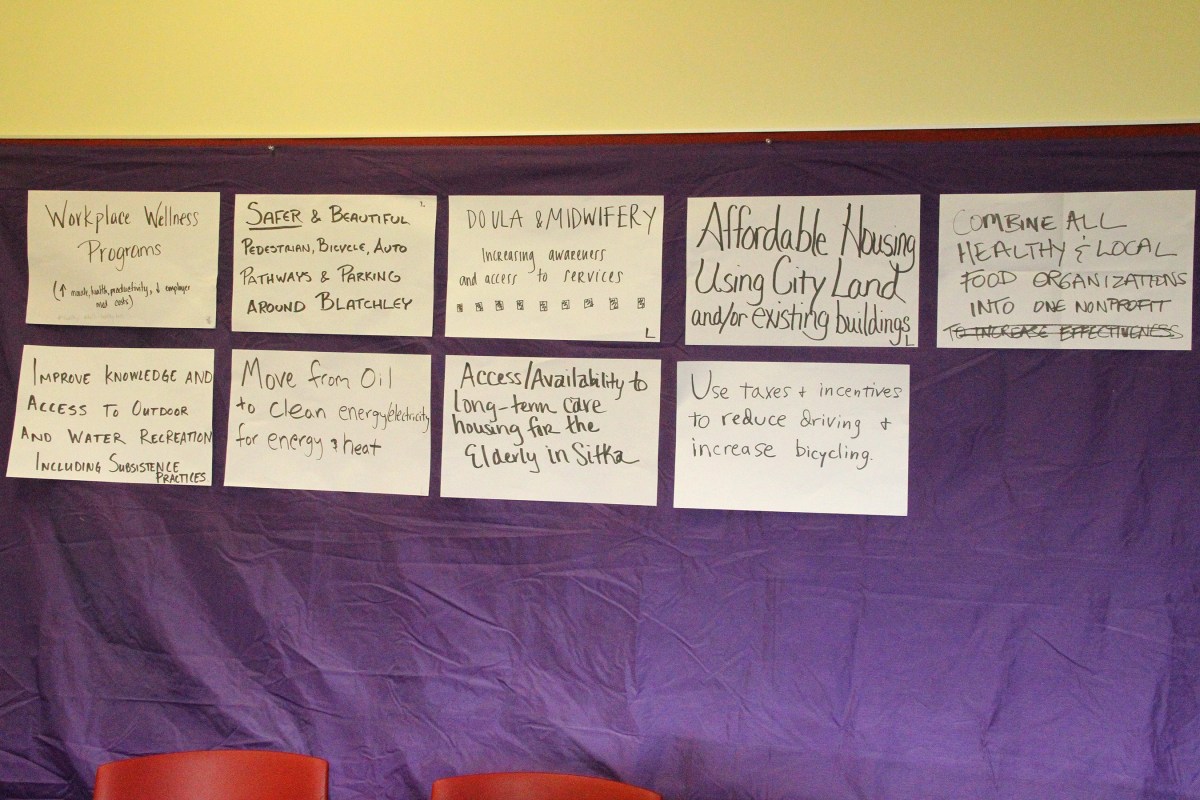 Workplace Wellness
Programs
(↑ morale, health, productivity, ↓ employer
med costs)
SAFER & BEAUTIFUL
PEDESTRIAN, BICYCLE, AUTO
PATHWAYS & PARKING
AROUND BLATCHLEY
L
DOULA & MIDWIFERY
Increasing awareness
and access to services
L
Affordable Housing
Using City Land
and/or existing buildings
L
COMBINE ALL
HEALTHY & LOCAL
FOOD ORGANIZATIONS
INTO ONE NONPROFIT
TO INCREASE EFFECTIVENESS
IMPROVE KNOWLEDGE AND
ACCESS TO OUTDOOR
AND WATER RECREATION
INCLUDING SUBSISTENCE
PRACTICES
Move from Oil
to clean energy/electricity
for energy & heat
Access/Availability to
long-term care
housing for the
Elderly in Sitka
Use taxes + incentives
to reduce driving +
increase bicycling.